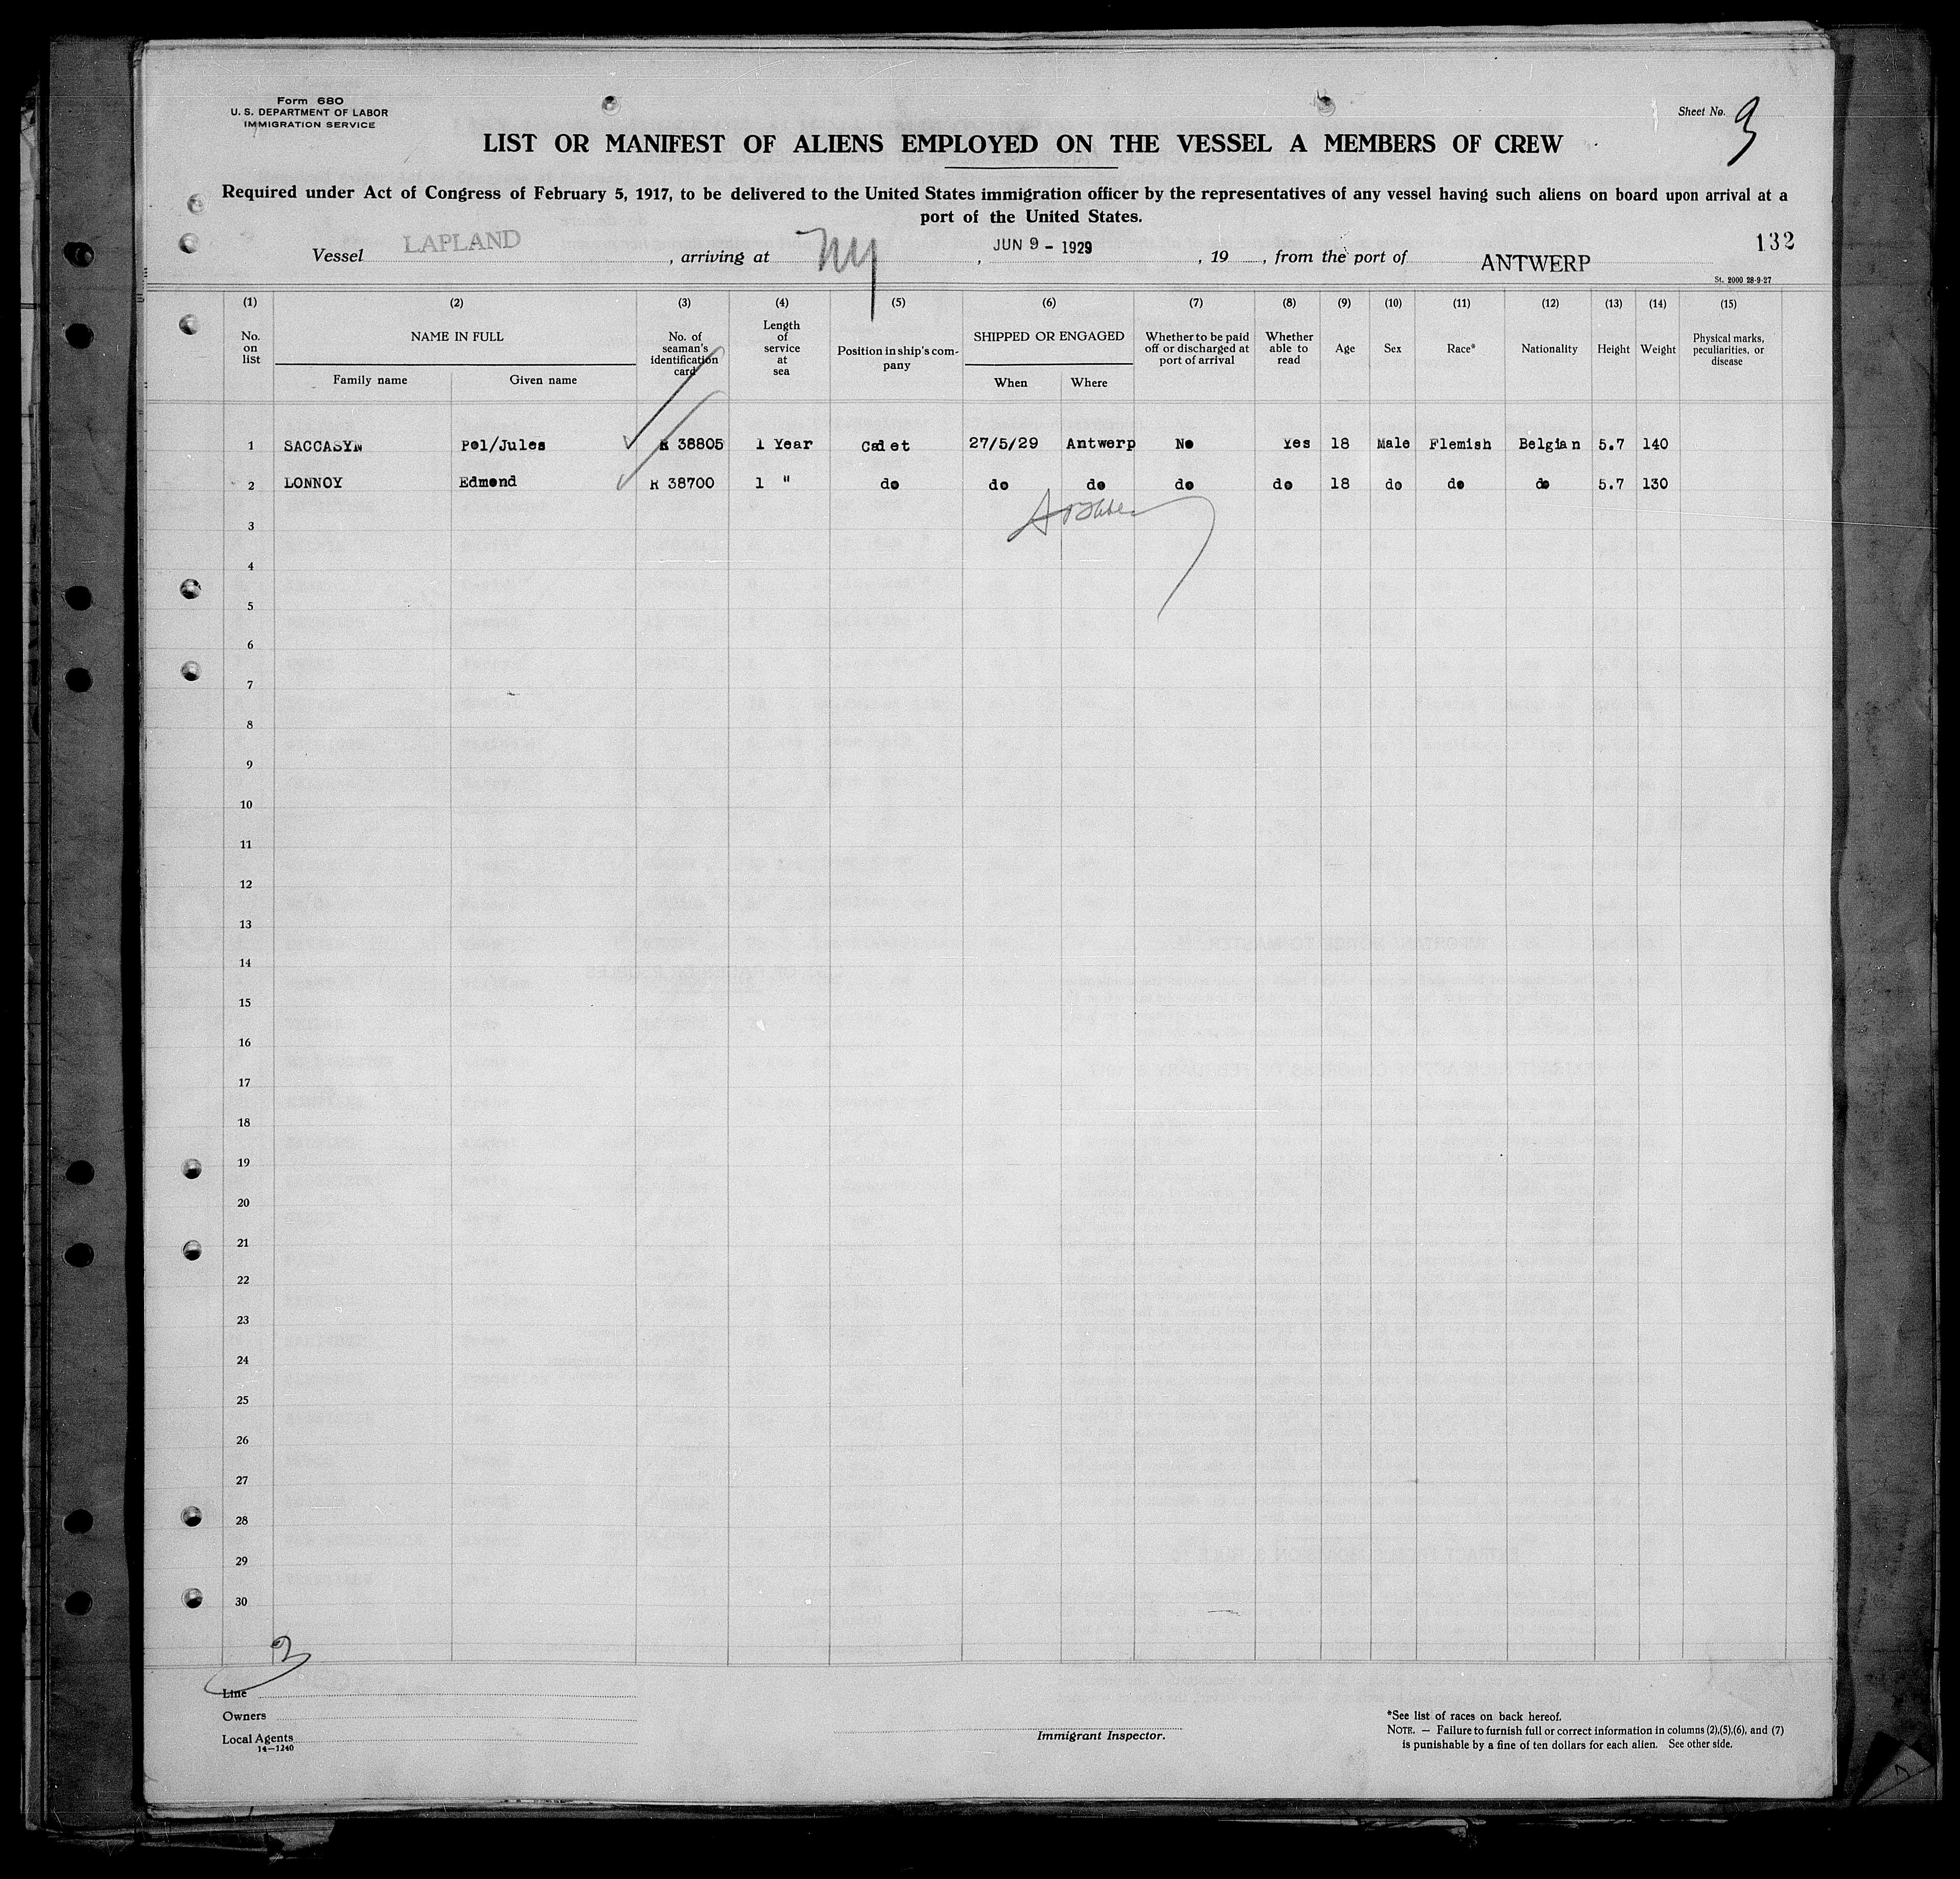 Form 680
U. S. DEPARTMENT OF LABOR
IMMIGRATION SERVICE
Sheet No. 3
LIST OR MANIFEST OF ALIENS EMPLOYED ON THE VESSEL A MEMBERS OF CREW
Required under Act of Congress of February 5, 1917, to be delivered to the United States immigration officer by the representatives of any vessel having such aliens on board upon arrival at a
port of the United States.
132
Vessel LAPLAND, arriving at NY, JUN 9 - 1929, 19, from the port of ANTWERP
St. 2000 28-9-27
(1) (2) (3) (4) (5) (6) (7) (8) (9) (10) (11) (12) (13) (14) (15)
No. on list NAME IN FULL Family name Given name No. of seaman's identification card Length of service at sea Position in ship's company SHIPPED OR ENGAGED When Where Whether to be paid off or discharged at port of arrival Whether able to read Age Sex Race* Nationality Height Weight Physical marks, peculiarities, or disease
1 SACCASYN Pol/Jules R 38805 1 Year Cadet 27/5/29 Antwerp No Yes 18 Male Flemish Belgian 5.7 140
2 LONNOY Edmond R 38700 1 " do do do do do 18 do do do 5.7 130
3
4
5
6
7
8
9
10
11
12
13
14
15
16
17
18
19
20
21
22
23
24
25
26
27
28
29
30
Line
Owners
Local Agents
14-1240
Immigrant Inspector.
*See list of races on back hereof.
NOTE. — Failure to furnish full or correct information in columns (2),(5),(6), and (7)
is punishable by a fine of ten dollars for each alien. See other side.